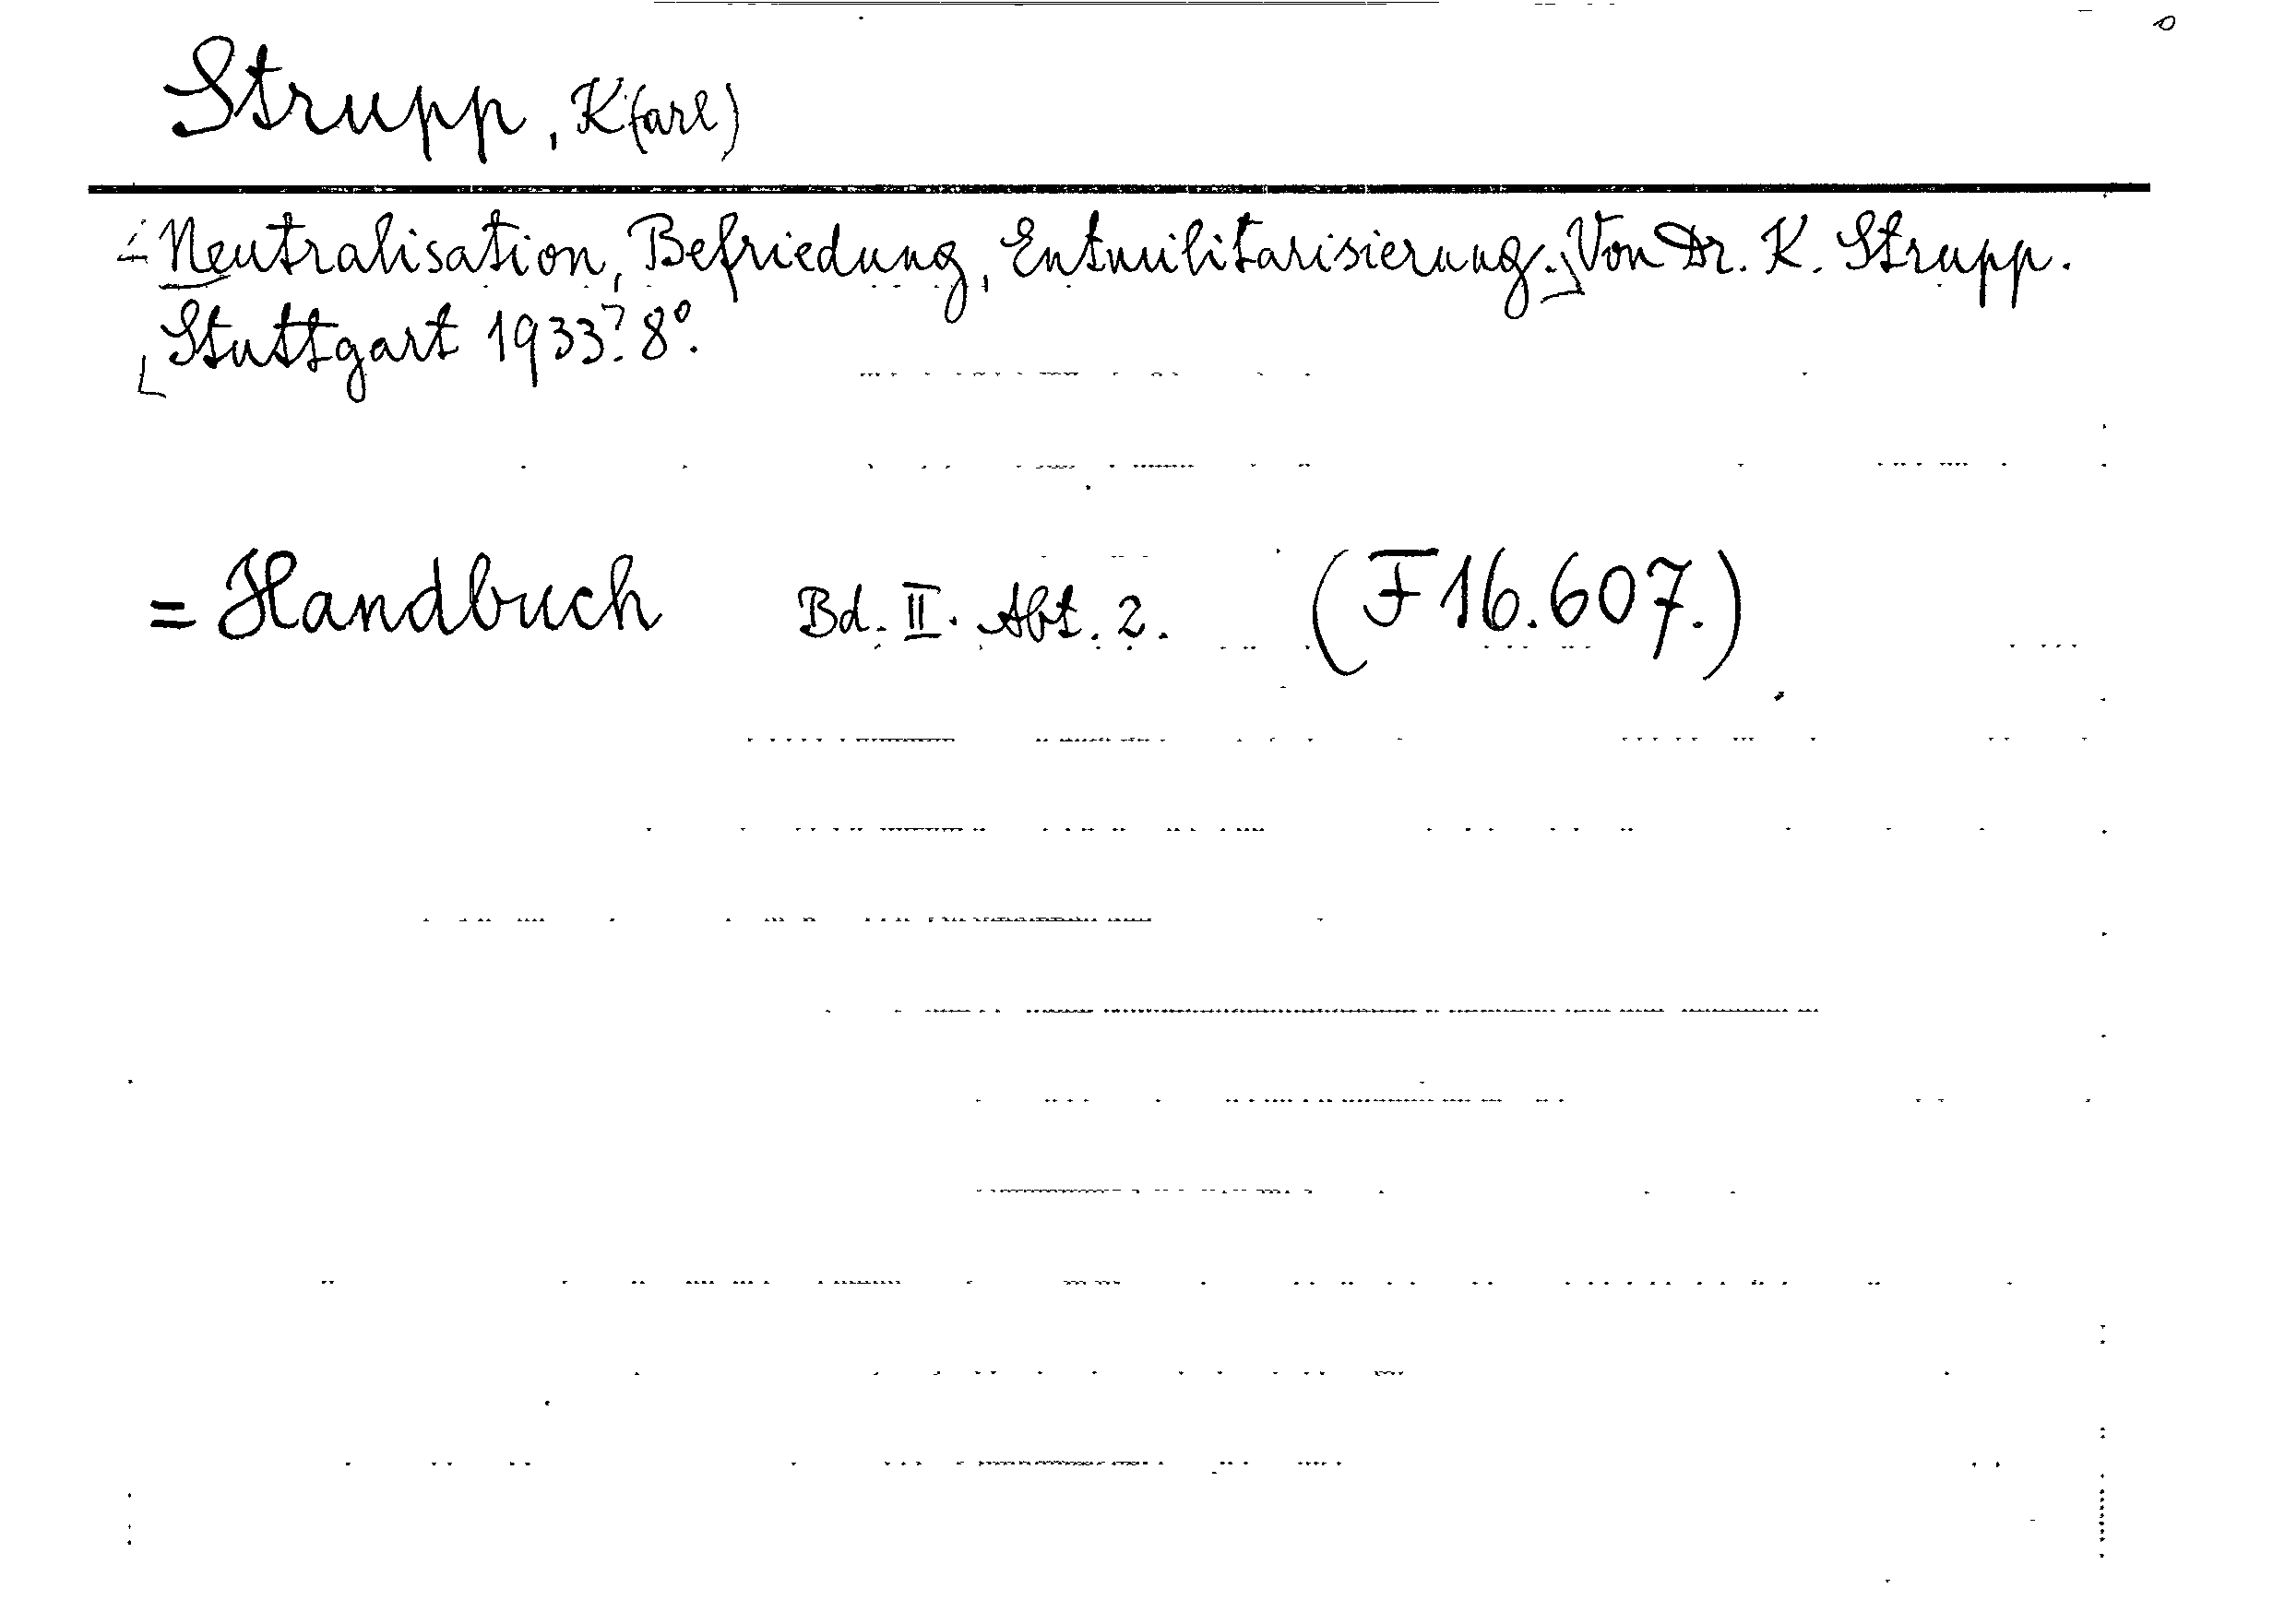 Strupp, K(arl)
Neutralisation, Befriedung, Entmilitarisierung. Von Dr. K. Strupp.
Stuttgart 1933. 8°.
= Handbuch Bd. II. Abt. 2. (F 16.607.)